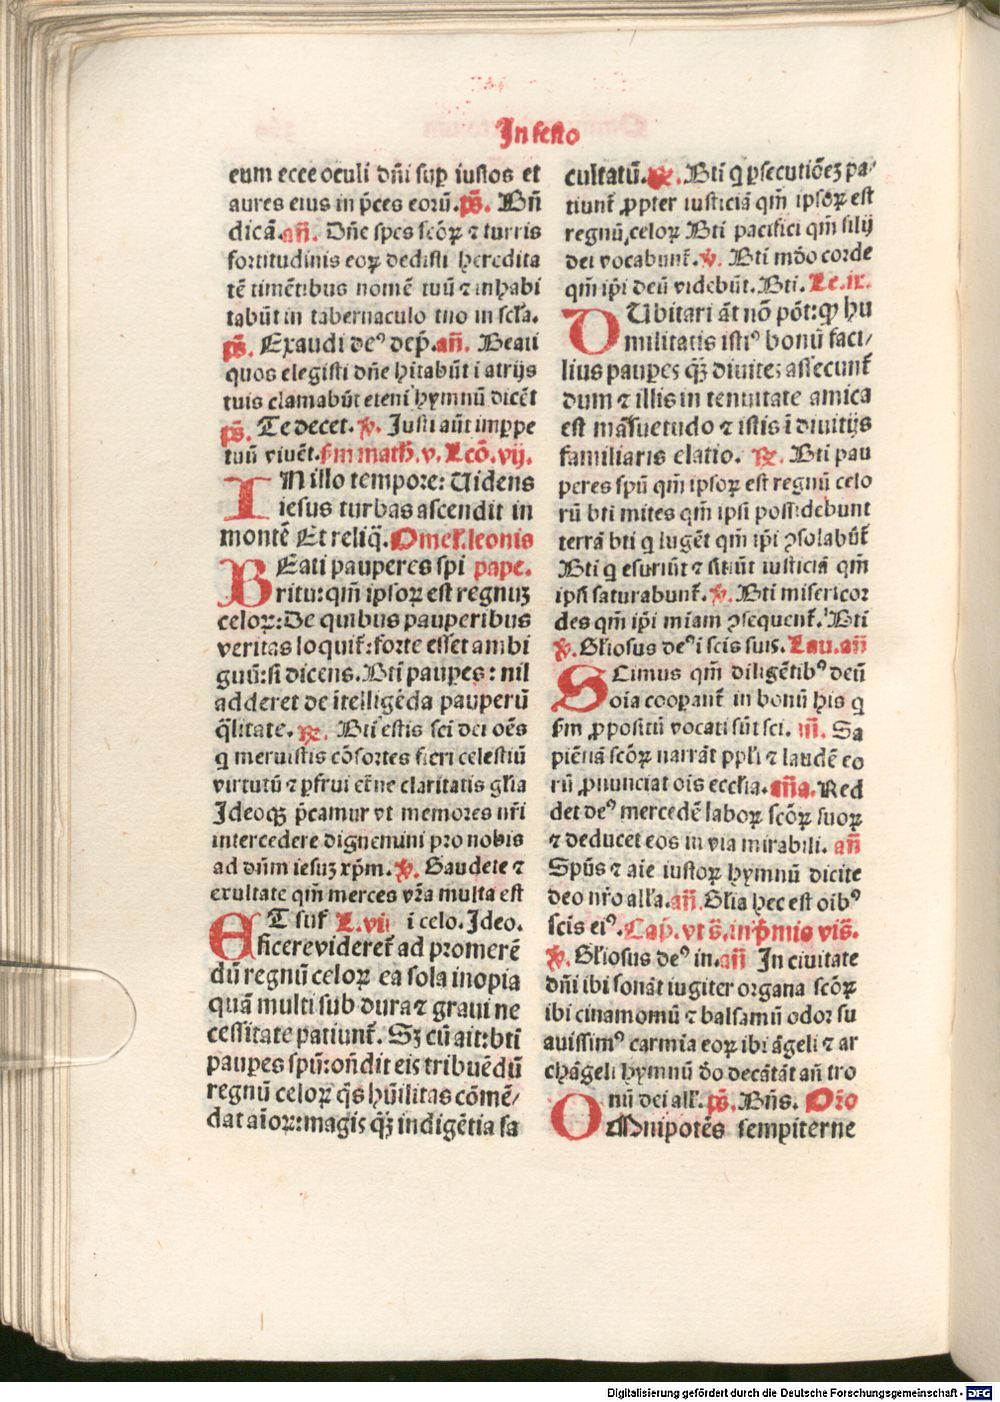 In festo
eum ecce oculi dñi sup̱ iustos et
aures eius in p̃ces eorũ. p̃s. Bñ
dicã. añ. Dñe spes scõꝝ ⁊ turris
fortitudinis eoꝝ dedisti heredita
tẽ timẽtibus nomẽ tuũ ⁊ inhabi
tabũt in tabernaculo tuo in scł̃a.
p̃s. Exaudi deꝰ dep̃. añ. Beati
quos elegisti dñe hitabũt i atrijs
tuis clamabũt etenĩ hymnũ dicẽt
p̃s. Te decet. ℣. Justi aũt imp̱pe
tuũ viuẽt. s̃m math̃. v. Lcõ. vij.
IN illo tempore: Uidens
iesus turbas ascendit in
montẽ Et reliq̃. Omeł. leonis
BEati pauperes spi pape.
ritu: qm̃ ipsoꝝ est regnuꝫ
celoꝝ: De quibus pauperibus
veritas loquit᷑: forte esset ambi
guũ: si dicens. Bti paup̱es: nil
adderet de ĩtelligẽda pauperũ
q̃litate. ℟. Bti estis sci dei oẽs
q meruistis cõsortes fieri celestiũ
virtutũ ⁊ p̱frui et̃ne claritatis gł̃ia
Jdeoqꝫ p̃camur vt memores nr̃i
intercedere dignemini pro nobis
ad dñm iesuꝫ xp̃m. ℣. Gaudete ⁊
exultate qm̃ merces vr̃a multa est
ET suſ L. vij i celo. Jdeo.
ficere videret᷑ ad promerẽ
dũ regnũ celoꝝ ea sola inopia
quã multi sub dura ⁊ graui ne
cessitate patiunt᷑. Sꝫ cũ ait: bti
paup̱es spũ: oñdit eis tribuẽdũ
regnũ celoꝝ q̃s hũilitas cõmẽ/
dat aĩoꝝ: magis q̃ꝫ indigẽtia fa
cultatũ. ℟. Bti q p̱secutiõeꝫ pa/
tiunt᷑ ꝓpter iusticiã qm̃ ipsõꝝ est
regnũ celoꝝ Bti pacifici qm̃ filij
dei vocabunt᷑. ℣. Bti mũdo corde
qm̃ ip̃i deũ videbũt. Bti. Le. ix.
DUbitari ãt nõ põt: ꝙ hu
militatis istiꝰ bonũ faci/
lius paup̱es q̃ꝫ diuites assecunt᷑
dum ⁊ illis in tenuitate amica
est mãsuetudo ⁊ istis ĩ diuitijs
familiaris elatio. ℟. Bti pau
peres spũ qm̃ ipsoꝝ est regnũ celo
rũ bti mites qm̃ ipsi possidebunt
terrã bti q lugẽt qm̃ ip̃i ꝯsolabũt᷑
Bti q esuriũt ⁊ sitiũt iusticiã qm̃
ipsi saturabunt᷑. ℣. Bti misericor
des qm̃ ip̃i miam ꝯsequent᷑. Bti
℣. Gl̃iosus deꝰ i scis suis. Lau. añ
SCimus qm̃ diligẽtibꝰ deũ
oia coopant᷑ in bonũ his q
s̃m ꝓpositũ vocati sũt sci. añ. Sa
piẽtiã scõꝝ narrãt ppl̃i ⁊ laudẽ eo
rũ ꝓnunciat oĩs eccl̃ia. aña. Red
det deꝰ mercedẽ laboꝝ scõꝝ suoꝝ
⁊ deducet eos in via mirabili. añ
Spũs ⁊ aĩe iustoꝝ hymnũ dicite
deo nr̃o all̃a. añ. Gl̃ia hec est oibꝰ
scis eiꝰ. Cap̃. vt s̃. in p̃mis vis̃.
℣. Gl̃iosus deꝰ in. añ In ciuitate
dñi ibi sonãt iugiter organa scõꝝ
ibi cinamomũ ⁊ balsamũ odor su
auissimꝰ carmia eoꝝ ibi ãgeli ⁊ ar
chãgeli hymnũ dõ decãtãt añ tro
nũ dei all̃. p̃s. Bñs. Or̃o
OMnipotẽs sempiterne
Digitalisierung gefördert durch die Deutsche Forschungsgemeinschaft - DFG